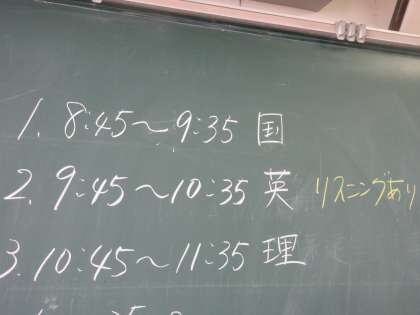 1. 8:45〜9:35 国
2. 9:45〜10:35 英 リスニングあり
3. 10:45〜11:35 理